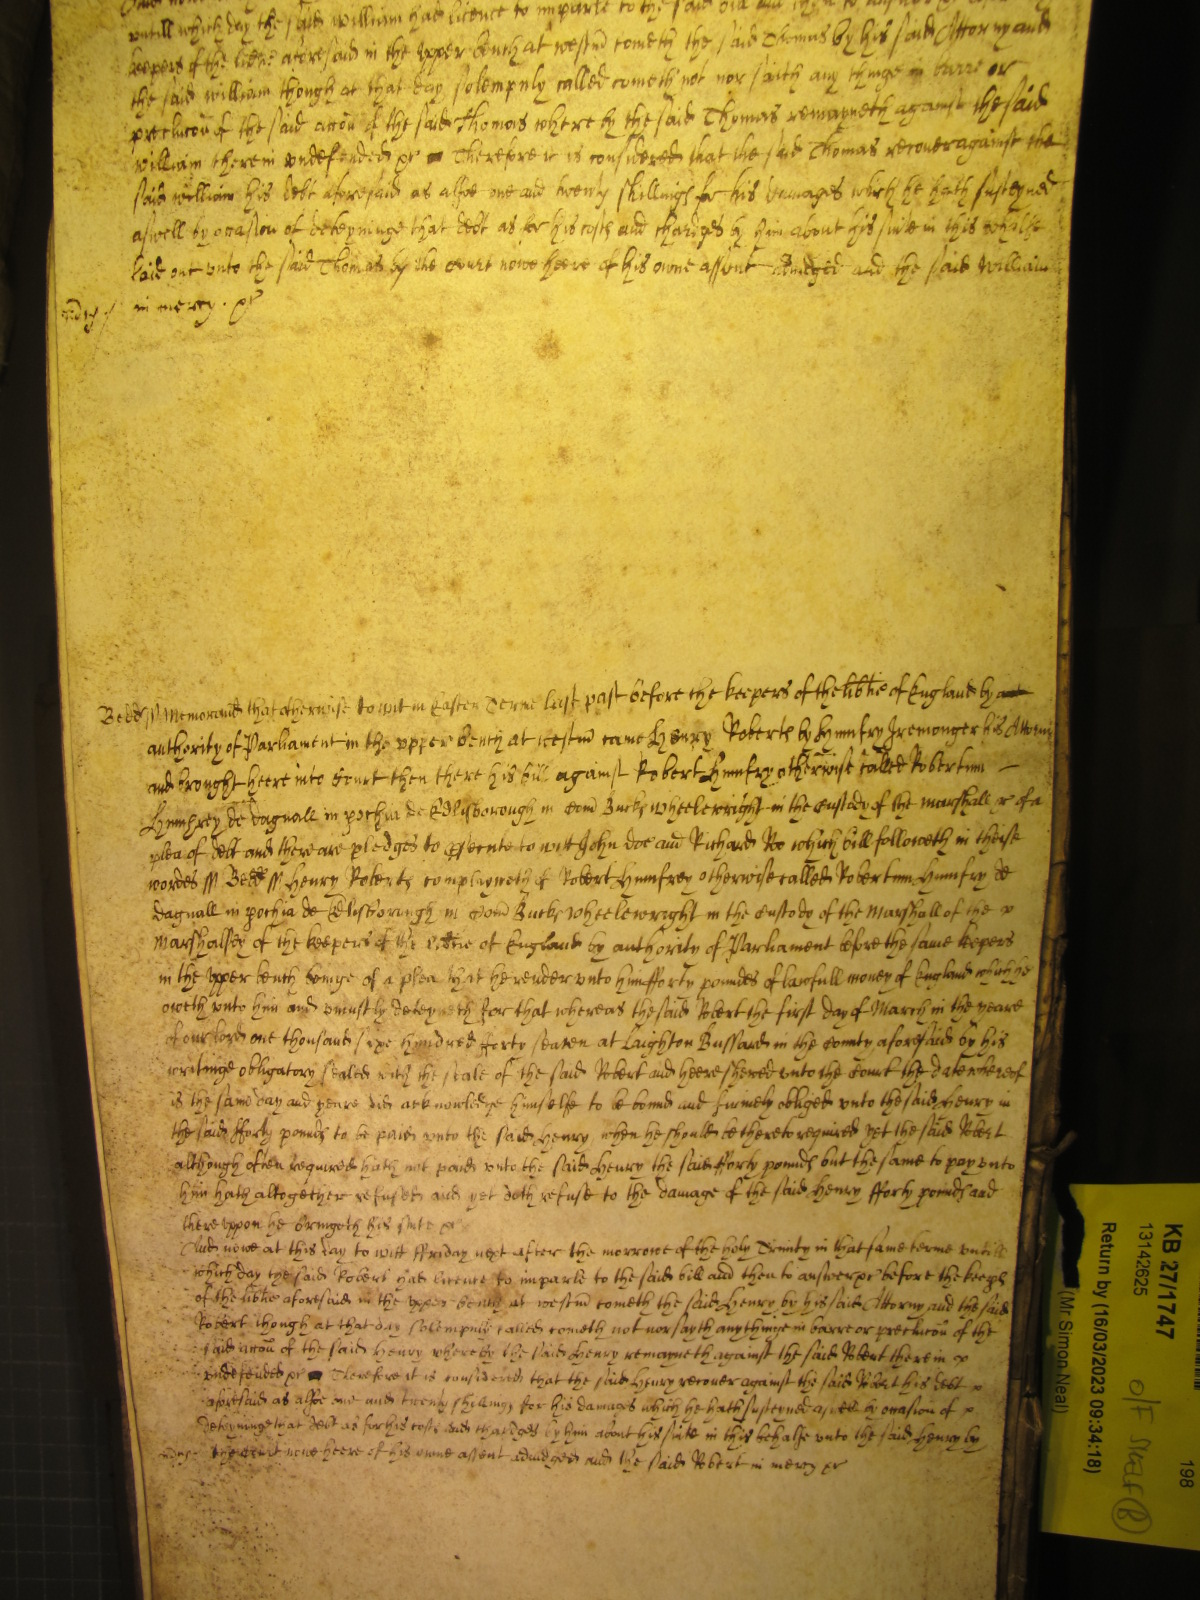 untill which day the said William had licence to imparle to the said bill and then to
keepers of the libtie aforesaid in the upper bench at westm cometh the said Thomas by his said Attorny and
the said william though at that day solempnly called cometh not nor saith any thinge in barre or
preclucon of the said accon of the said Thomas where by the said Thomas remayneth against the said
william therein undefended &c Therefore it is considered that the said Thomas recover against the
said william his debt aforesaid as alsoe one and twenty shillings for his damages which he hath susteyned
aswell by occasion of deteyninge that debt as for his costs and chardges by him about his suite in this behalfe
laid out unto the said Thomas by the Court nowe heere of his owne assent adiudged and the said William
in mercy . &c
Bedd ss Memorand that otherwise to wit in Easter Terme last past before the keepers of the libtie of England by
authority of Parliament in the upper bench at westm came Henry Roberts by Humfry Iremonger his Attorny
and brought heere into Court then there his bill against Robert Humfry otherwise called Robertum
Humphrey de dagnall in pochia de Edlisborough in Com Bucks wheelewright in the custody of the marshall &c of a
plea of debt and there are pledges to psecute to witt John doe and Richard Roe which bill followeth in theise
wordes ss Bedd ss Henry Roberts complayneth of Robert Humfrey otherwise called Robertum Humfry de
dagnall in pochia de Edlisboringh in Com Bucks wheelewright in the custody of the Marshall of the
Marshalsey of the keepers of the libtie of England by authority of Parliament before the same keepers
in the upper bench beinge of a plea that he render unto him fforty poundes of lawfull money of England which he
oweth unto him and uniustly deteyneth for that whereas the said Robert the first day of March in the yeare
of our lord one thousand sixe hundred fforty seaven at Laighton Bussard in the County aforesaid by his
writinge obligatory sealed with the seale of the said Robert and heere shewed unto the Court the date whereof
is the same day and yeare did acknowledge himselfe to be bound and firmely obliged unto the said Henry in
the said fforty pounds to be paid unto the said Henry when he should be thereto required yet the said Robert
although often required hath not paid unto the said Henry the said fforty pounds but the same to pay unto
him hath altogether refused and yet doth refuse to the damage of the said Henry fforty pounds and
thereuppon he bringeth his suite &c
And nowe at this day to witt ffriday next after the morrowe of the holy Trinity in that same terme untill
which day the said Robert had licence to imparle to the said bill and then to answer &c before the keeps
of the libtie aforesaid in the upper bench at westm cometh the said Henry by his said Attorny and the said
Robert though at that day solempnly called cometh not nor sayth anythinge in barre or preclucon of the
said accon of the said Henry whereby the said Henry remayneth against the said Robert therein
undefended &c Therefore it is considered that the said Henry recover against the said Robert his debt
aforesaid as alsoe one and twenty shillings for his damages which he hath susteyned aswell by occasion of
deteyninge that debt as for his costs and chardges by him about his suite in this behalfe unto the said Henry by
the Court nowe heere of his owne assent adiudged and the said Robert in mercy &c
KB 27/1747
198
13142625
O/F Shelf (B)
Return by (16/03/2023 09:34:18)
(Mr Simon Neal)